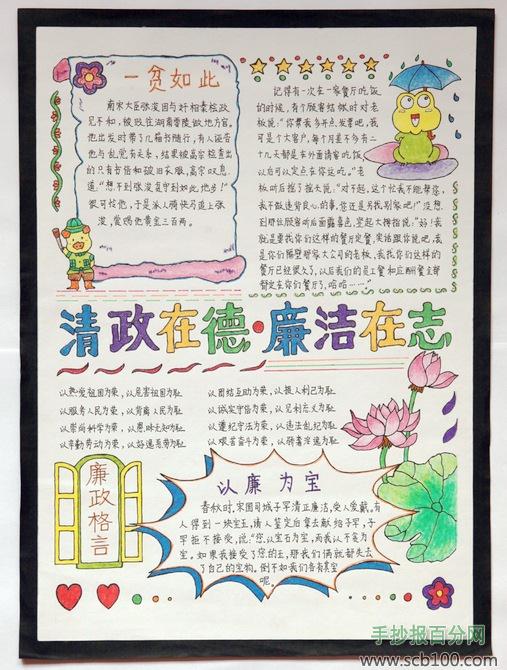 一贫如此
南宋大臣张浚因与奸相秦桧政
见不和,被贬往湖南零陵做地方官。
他出发时带了几箱书随行,有人诬告
他与乱党有关系,结果被高宗检查出
的只有书信和破旧衣服,高宗叹息
道:“想不到张浚竟守到如此地步!”
很可怜他,于是派人骑快马追上张
浚,赏赐他黄金三百两。
记得有一次在一家餐厅吃饭
的时候,有个顾客结帐时对老
板说:“你帮我多开点发票吧,我
可是个大客户,每个月差不多有二
十九天都是在外面请客吃饭,
以后可以定点在你这吃。”老
板听后摇了摇头说:“对不起,这个忙我不能帮您,
我不做违背良心的事,您还是另找别家吧!”没想
到那位顾客听后面露喜色,竖起大拇指说:“好!我
就是要找你们这样的餐厅定餐,实话跟你说吧,我
是你们隔壁那家大公司的老板,我找你们这样的
餐厅已经很久了,以后我们的员工餐和应酬餐全部
都定在你们餐厅了,哈哈……”
清政在德·廉洁在志
以热爱祖国为荣,以危害祖国为耻
以服务人民为荣,以背离人民为耻
以崇尚科学为荣,以愚昧无知为耻
以辛勤劳动为荣,以好逸恶劳为耻
以团结互助为荣,以损人利己为耻
以诚实守信为荣,以见利忘义为耻
以遵纪守法为荣,以违法乱纪为耻
以艰苦奋斗为荣,以骄奢淫逸为耻
廉政格言
以廉为宝
春秋时,宋国司城子罕清正廉洁,受人爱戴。有
人得到一块宝玉,请人鉴定后拿去献给子罕,子
罕拒不接受,说:“您以宝石为宝,而我以不贪为
宝。如果我接受了您的玉,那我们俩就都失去
了自己的宝物。倒不如我们各有其宝
呢。
手抄报百分网
www.scb100.com